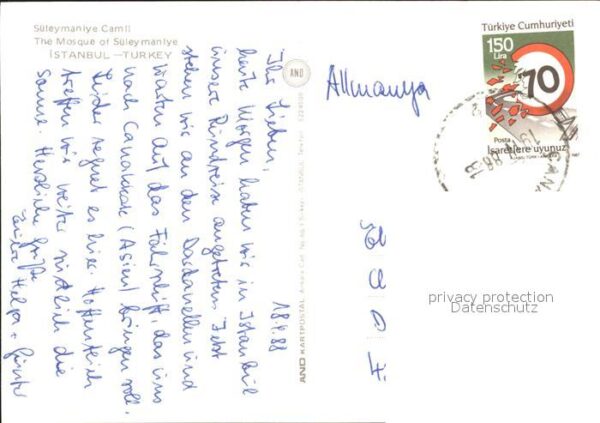 Süleymaniye Camii
The Mosque of Süleymaniye
İSTANBUL — TURKEY
18.4.88
Ihr Lieben,
heute Morgen haben wir in Istanbul
unsere Rundreise angetreten. Jetzt
stehen wir an den Dardanellen und
warten auf das Fährschiff, das uns
nach Canakkale (Asien) bringen soll.
Leider regnet es hier. Hoffentlich
treffen wir weiter südlich die
Sonne. Herzliche Grüße
Eure Helga + Günter
AND
AND KARTPOSTAL
Allmanya
Türkiye Cumhuriyeti
150
Lira
70
Posta
İşaretlere uyunuz
1987
88
ÇANA
privacy protection
Datenschutz